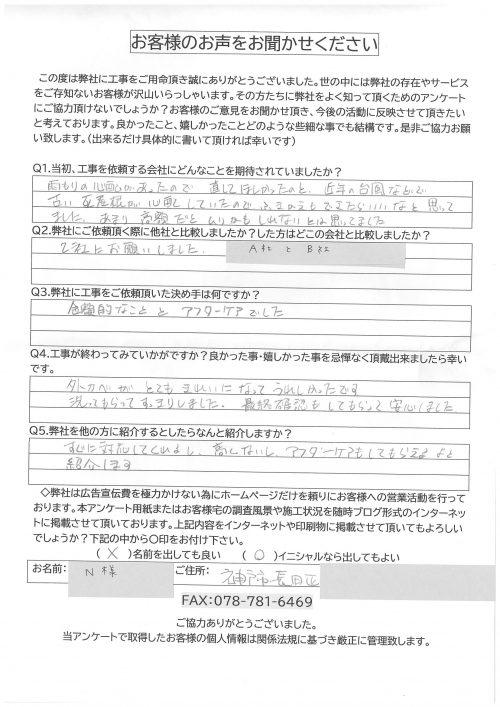 お客様のお声をお聞かせください
この度は弊社に工事をご用命頂き誠にありがとうございました。世の中には弊社の存在やサービス
をご存知ないお客様が沢山いらっしゃいます。その方たちに弊社をよく知って頂くためのアンケート
にご協力頂けないでしょうか?お客様のご意見をお聞かせ頂き、今後の活動に反映させて頂きたい
と考えております。良かったこと、嬉しかったことどのような些細な事でも結構です。是非ご協力お願
い致します。(出来るだけ具体的に書いて頂ければ幸いです)
Q1.当初、工事を依頼する会社にどんなことを期待されていましたか?
雨もりの心配があったので 直してほしかったのと、近年の台風などで
古い瓦屋根が心配していたので ふきかえもできたらいいなと思って
ました。あまり高額だとムリかもしれないとは思ってました
Q2.弊社にご依頼頂く際に他社と比較しましたか?した方はどこの会社と比較しましたか?
2社にお願いしました。 A社とB社
Q3.弊社に工事をご依頼頂いた決め手は何ですか?
金額的なことと アフターケアでした
Q4.工事が終わってみていかがですか?良かった事・嬉しかった事を忌憚なく頂戴出来ましたら幸い
です。
外カベがとてもきれいになってうれしかったです
洗ってもらってすっきりしました。最終確認もしてもらって安心しました
Q5.弊社を他の方に紹介するとしたらなんと紹介しますか?
すぐに対応してくれるし、高くないし、アフターケアもしてもらえるよと
紹介します
◇弊社は広告宣伝費を極力かけない為にホームページだけを頼りにお客様への営業活動を行って
おります。本アンケート用紙またはお客様宅の調査風景や施工状況を随時ブログ形式のインターネッ
トに掲載させて頂いております。上記内容をインターネットや印刷物に掲載させて頂いてもよろしい
でしょうか?下記の中から〇印をお付け下さい。
(×)名前を出しても良い (〇)イニシャルなら出してもよい
お名前: N様 ご住所: 神戸市長田区
FAX:078-781-6469
ご協力ありがとうございました。
当アンケートで取得したお客様の個人情報は関係法規に基づき厳正に管理致します。